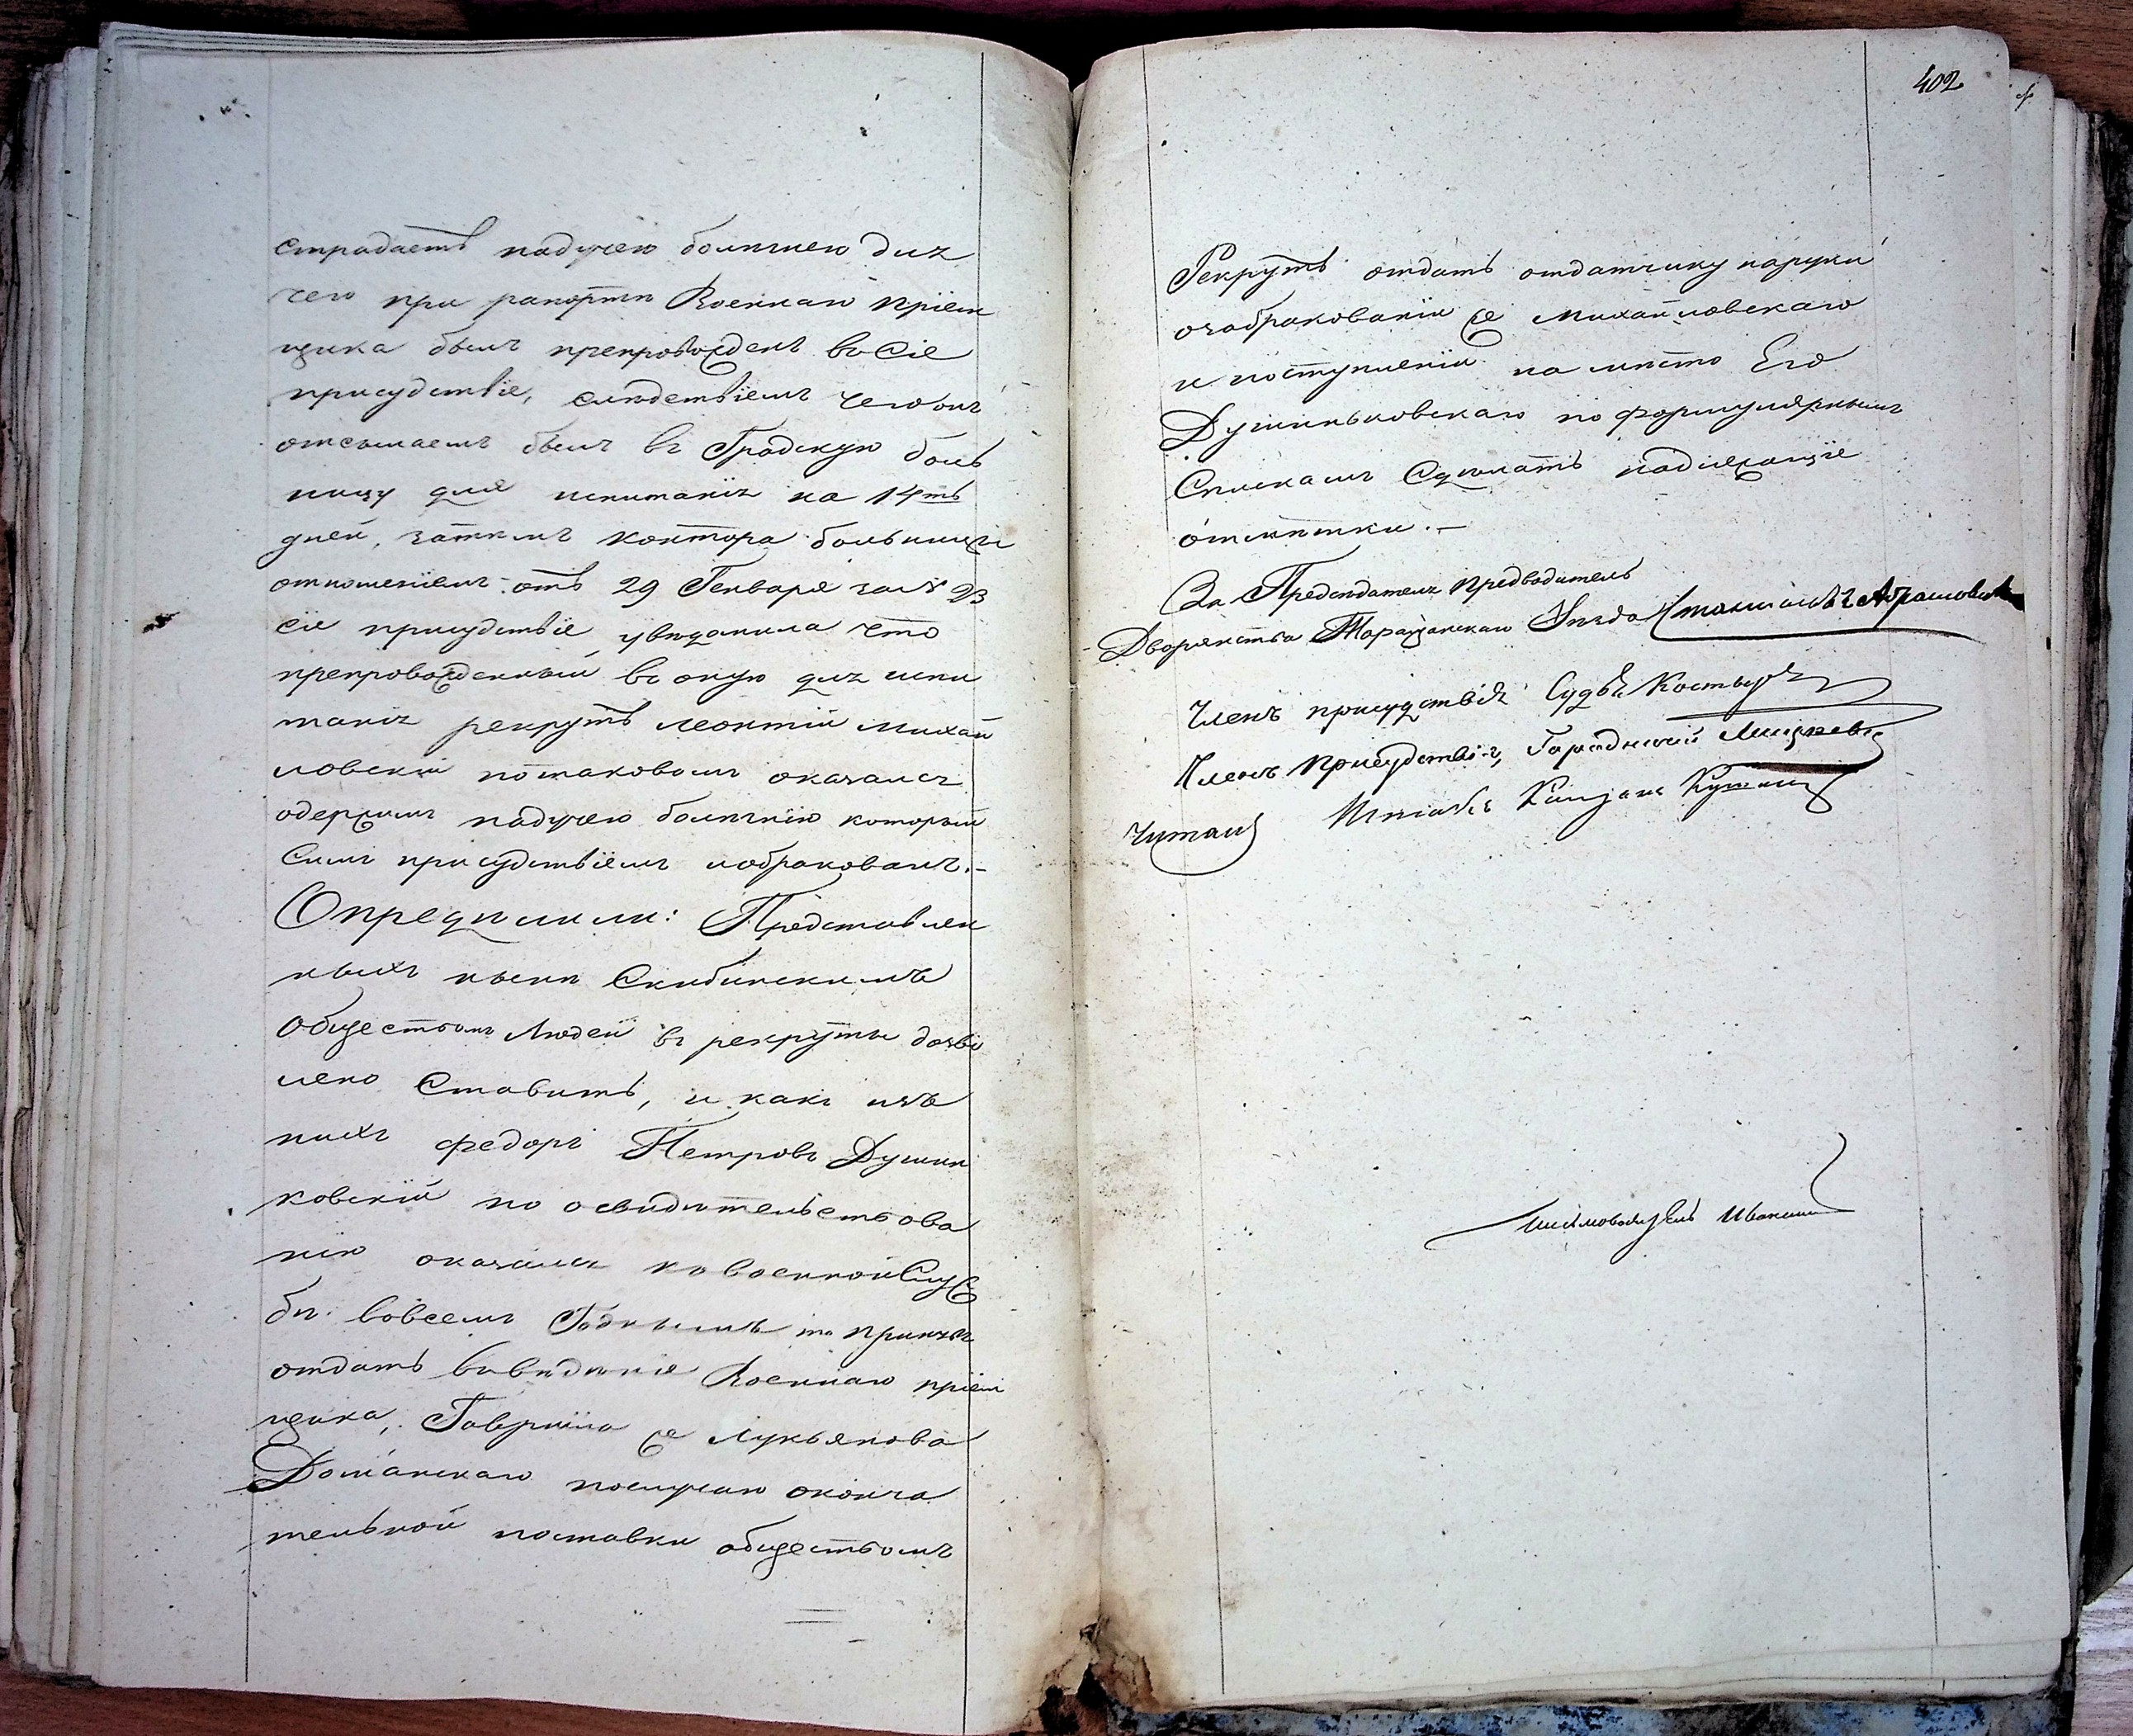 страдаетъ падучею болѣзнею для
чего при рапортѣ Военнаго пріем
щика былъ препровожденъ въ Сіе
присудствіе, слѣдствіемъ чего онъ
отсылаемъ былъ въ Градскую боль
ницу для испитанія на 14ть
дней, затѣмъ контора больницы
отношеніемъ отъ 29 Генваря за № 23
сіе присудствіе увѣдомила что
препровожденный въ оную для испи
танія рекрутъ Леонтій Михай
ловскій по таковомъ оказался
одержимъ падучею болѣзнію который
Симъ присудствіемъ и обракованъ.-
Опредѣлили: Представлен
ныхъ нынѣ Скибинскимъ
Обществомъ Людей въ рекруты дозво
лено Ставить, и какъ изъ
нихъ Федоръ Петровъ Душин
ковскій по освидѣтельствова
нію оказался къ военной Служ
бѣ вовсемъ Годнымъ то принявъ
отдать въ вѣденіе Военнаго пріем
щика, Гавріила же Лукьянова
Доманскаго послучаю оконча
тельной поставки обществомъ
402
Рекрутъ отдать отдатчику наруки
о забракованіи же Михайловскаго
и поступленіи на мѣсто Его
Душиньковскаго по формулярнымъ
Спискамъ Сдѣлать надлежащіе
отмѣтки.-
За Предсѣдателя Предводитель
Дворянства Таращанскаго Уѣзда
Членъ присудствія Судья
Членъ Присудствія, Городничій
Читалъ
Письмоводитель